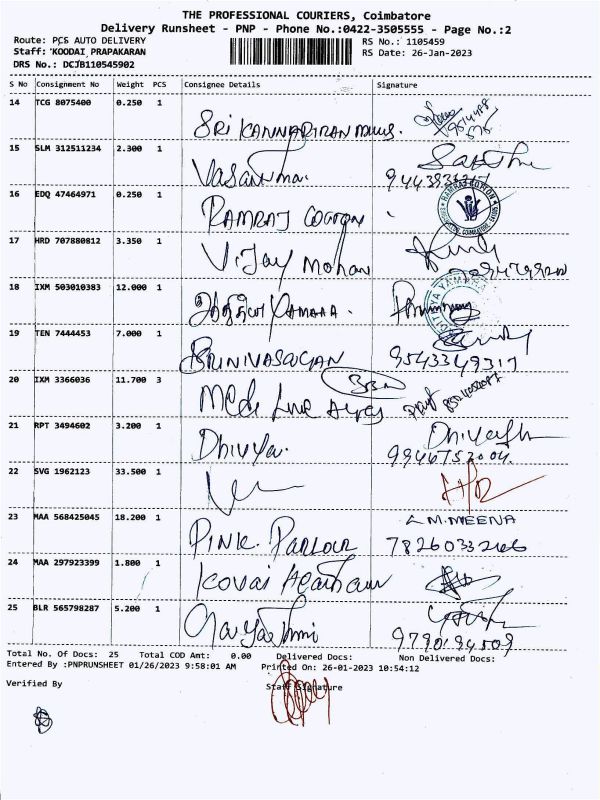 THE PROFESSIONAL COURIERS, Coimbatore
Delivery Runsheet - PNP - Phone No.:0422-3505555 - Page No.:2
Route: PCS AUTO DELIVERY
RS No.: 1105459
Staff: KOODAI PRAPAKARAN
RS Date: 26-Jan-2023
DRS No.: DCJB110545902
S No Consignment No Weight PCS Consignee Details Signature
14 TCG 8075400 0.250 1
SRI KANNAPIRAN Mills.
15 SLM 312511234 2.300 1
Vasantha.
16 EDQ 47464971 0.250 1
RAMRAJ COTTON
17 HRD 707880812 3.350 1
Vijay Mohan
18 IXM 503010383 12.000 1
19 TEN 7444453 7.000 1
SRINIVASAGAN 9543349317
20 IXM 3366036 11.700 3
21 RPT 3494602 3.200 1
Dhivya. 9946752004.
22 SVG 1962123 33.500 1
23 MAA 568425045 18.200 1
M.MEENA
PINK PARLOUR 7826033266
24 MAA 297923399 1.800 1
Kovai
25 BLR 565798287 5.200 1
9790194509
Total No. Of Docs: 25 Total COD Amt: 0.00 Delivered Docs: Non Delivered Docs:
Entered By :PNPRUNSHEET 01/26/2023 9:58:01 AM Printed On: 26-01-2023 10:54:12
Verified By Staff Signature